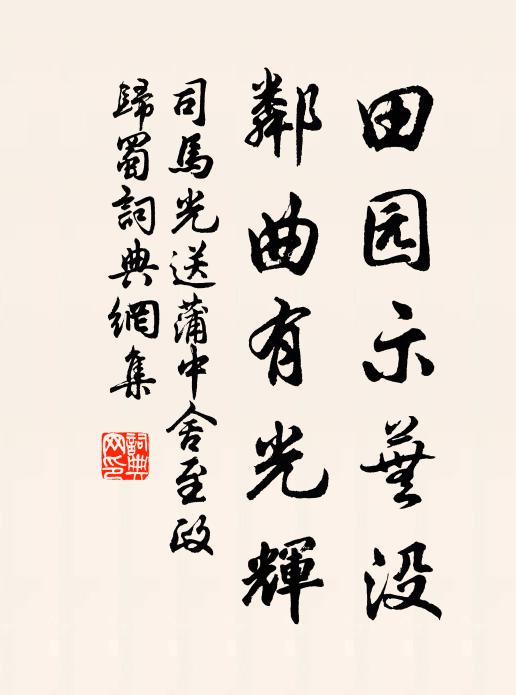 田园示蕪没
鄰曲有光輝
司馬光送蒲中舍至政
歸蜀詞典網集
詞典网印